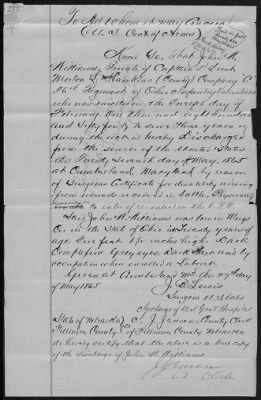 To All Whom it may Concern
(U. S. Coat of Arms)
Know Ye, That John W.
Williams, Private of Captain
Morton L. Hawkins (County) Company "C"
Regiment of Ohio Infantry Volunteers
who was mustered, the Twelfth day of
February One thousand eight hundred
and Sixty four to serve three years or
during the war is hereby Discharged
from the service of the United States
this Twenty Seventh day of May, 1865
at Cumberland, Maryland by reason
of Surgeons Certificate for disability arising
from wounds received in battle,
Said John W. Williams was born in Meigs
Co. in the State of Ohio is Twenty years of
age Five feet 8 1/2 inches high Dark
Complexion, Grey eyes, Dark Hair and by
occupation when enrolled a Laborer
Given at Cumberland Md. the 27th day
of May 1865
J. B. Lewis
Surgeon U. S. Vols
In charge of U. S. Genl Hospital
State of Nebraska
County Clerk
Fillmore County SS of Fillmore County Nebraska
do hereby certify that the above is a true copy
of the discharge of John W. Williams
Clerk